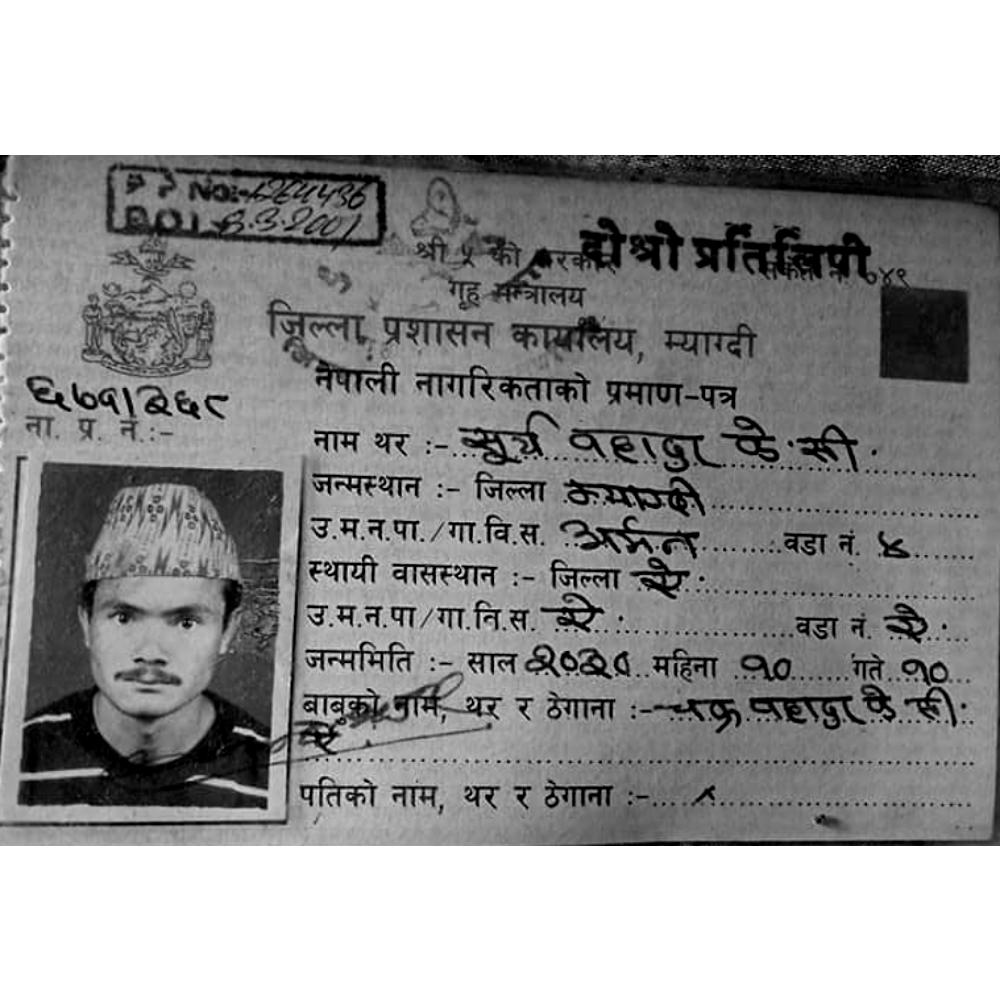 P P NO:-
D.O.I.-8.3.2001
श्री ५ को सरकार दोश्रो प्रतिलिपी
गृह मन्त्रालय
जिल्ला प्रशासन कार्यालय, म्याग्दी
नेपाली नागरिकताको प्रमाण-पत्र
ना. प्र. नं.:-
नाम थर :- सूर्य वहादुर के.सी.
जन्मस्थान :- जिल्ला म्याग्दी
उ.म.न.पा./गा.वि.स. अर्मन वडा नं. ४
स्थायी वासस्थान :- जिल्ला ऐ.
उ.म.न.पा/गा.वि.स. ऐ. वडा नं. ऐ.
जन्ममिति :- साल २०३० महिना १० गते १०
बाबुको नाम, थर र ठेगाना :- चक्र वहादुर के.सी.
ऐ.
पतिको नाम, थर र ठेगाना :- ×